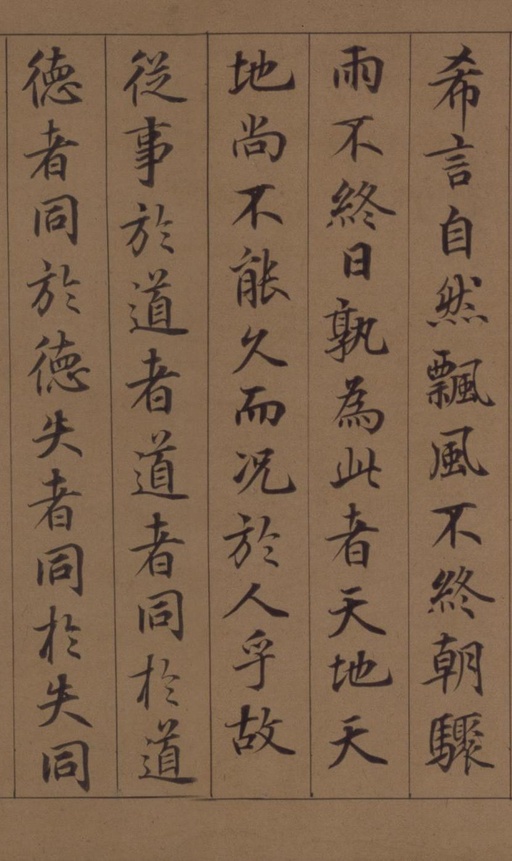 希言自然飄風不終朝驟
雨不終日孰為此者天地天
地尚不能久而況於人乎故
從事於道者道者同於道
德者同於德失者同於失同